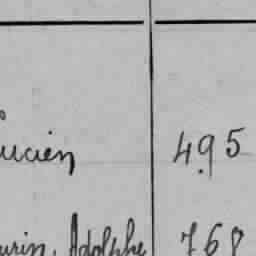 ucien 495
urin, Adolphe 768